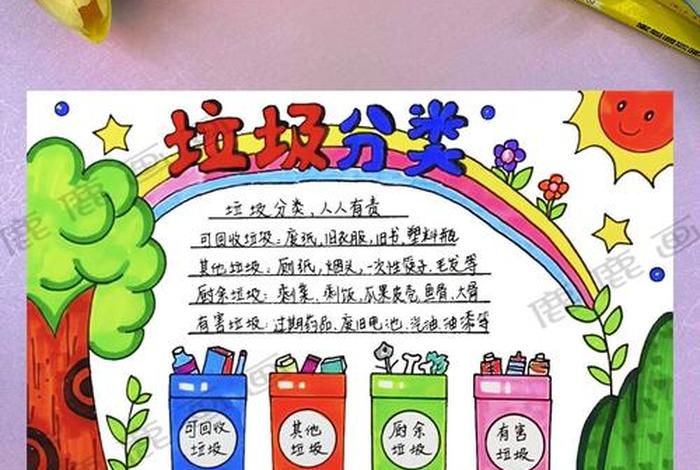 垃圾分类
垃圾分类,人人有责
可回收垃圾:废纸,旧衣服,旧书,塑料瓶
其他垃圾:厕纸,烟头,一次性筷子,毛发等
厨余垃圾:剩菜、剩饭、瓜果皮壳、鱼骨、大骨
有害垃圾:过期药品、废旧电池、汽油、油漆等
可回收
垃圾
其他
垃圾
厨余
垃圾
有害
垃圾